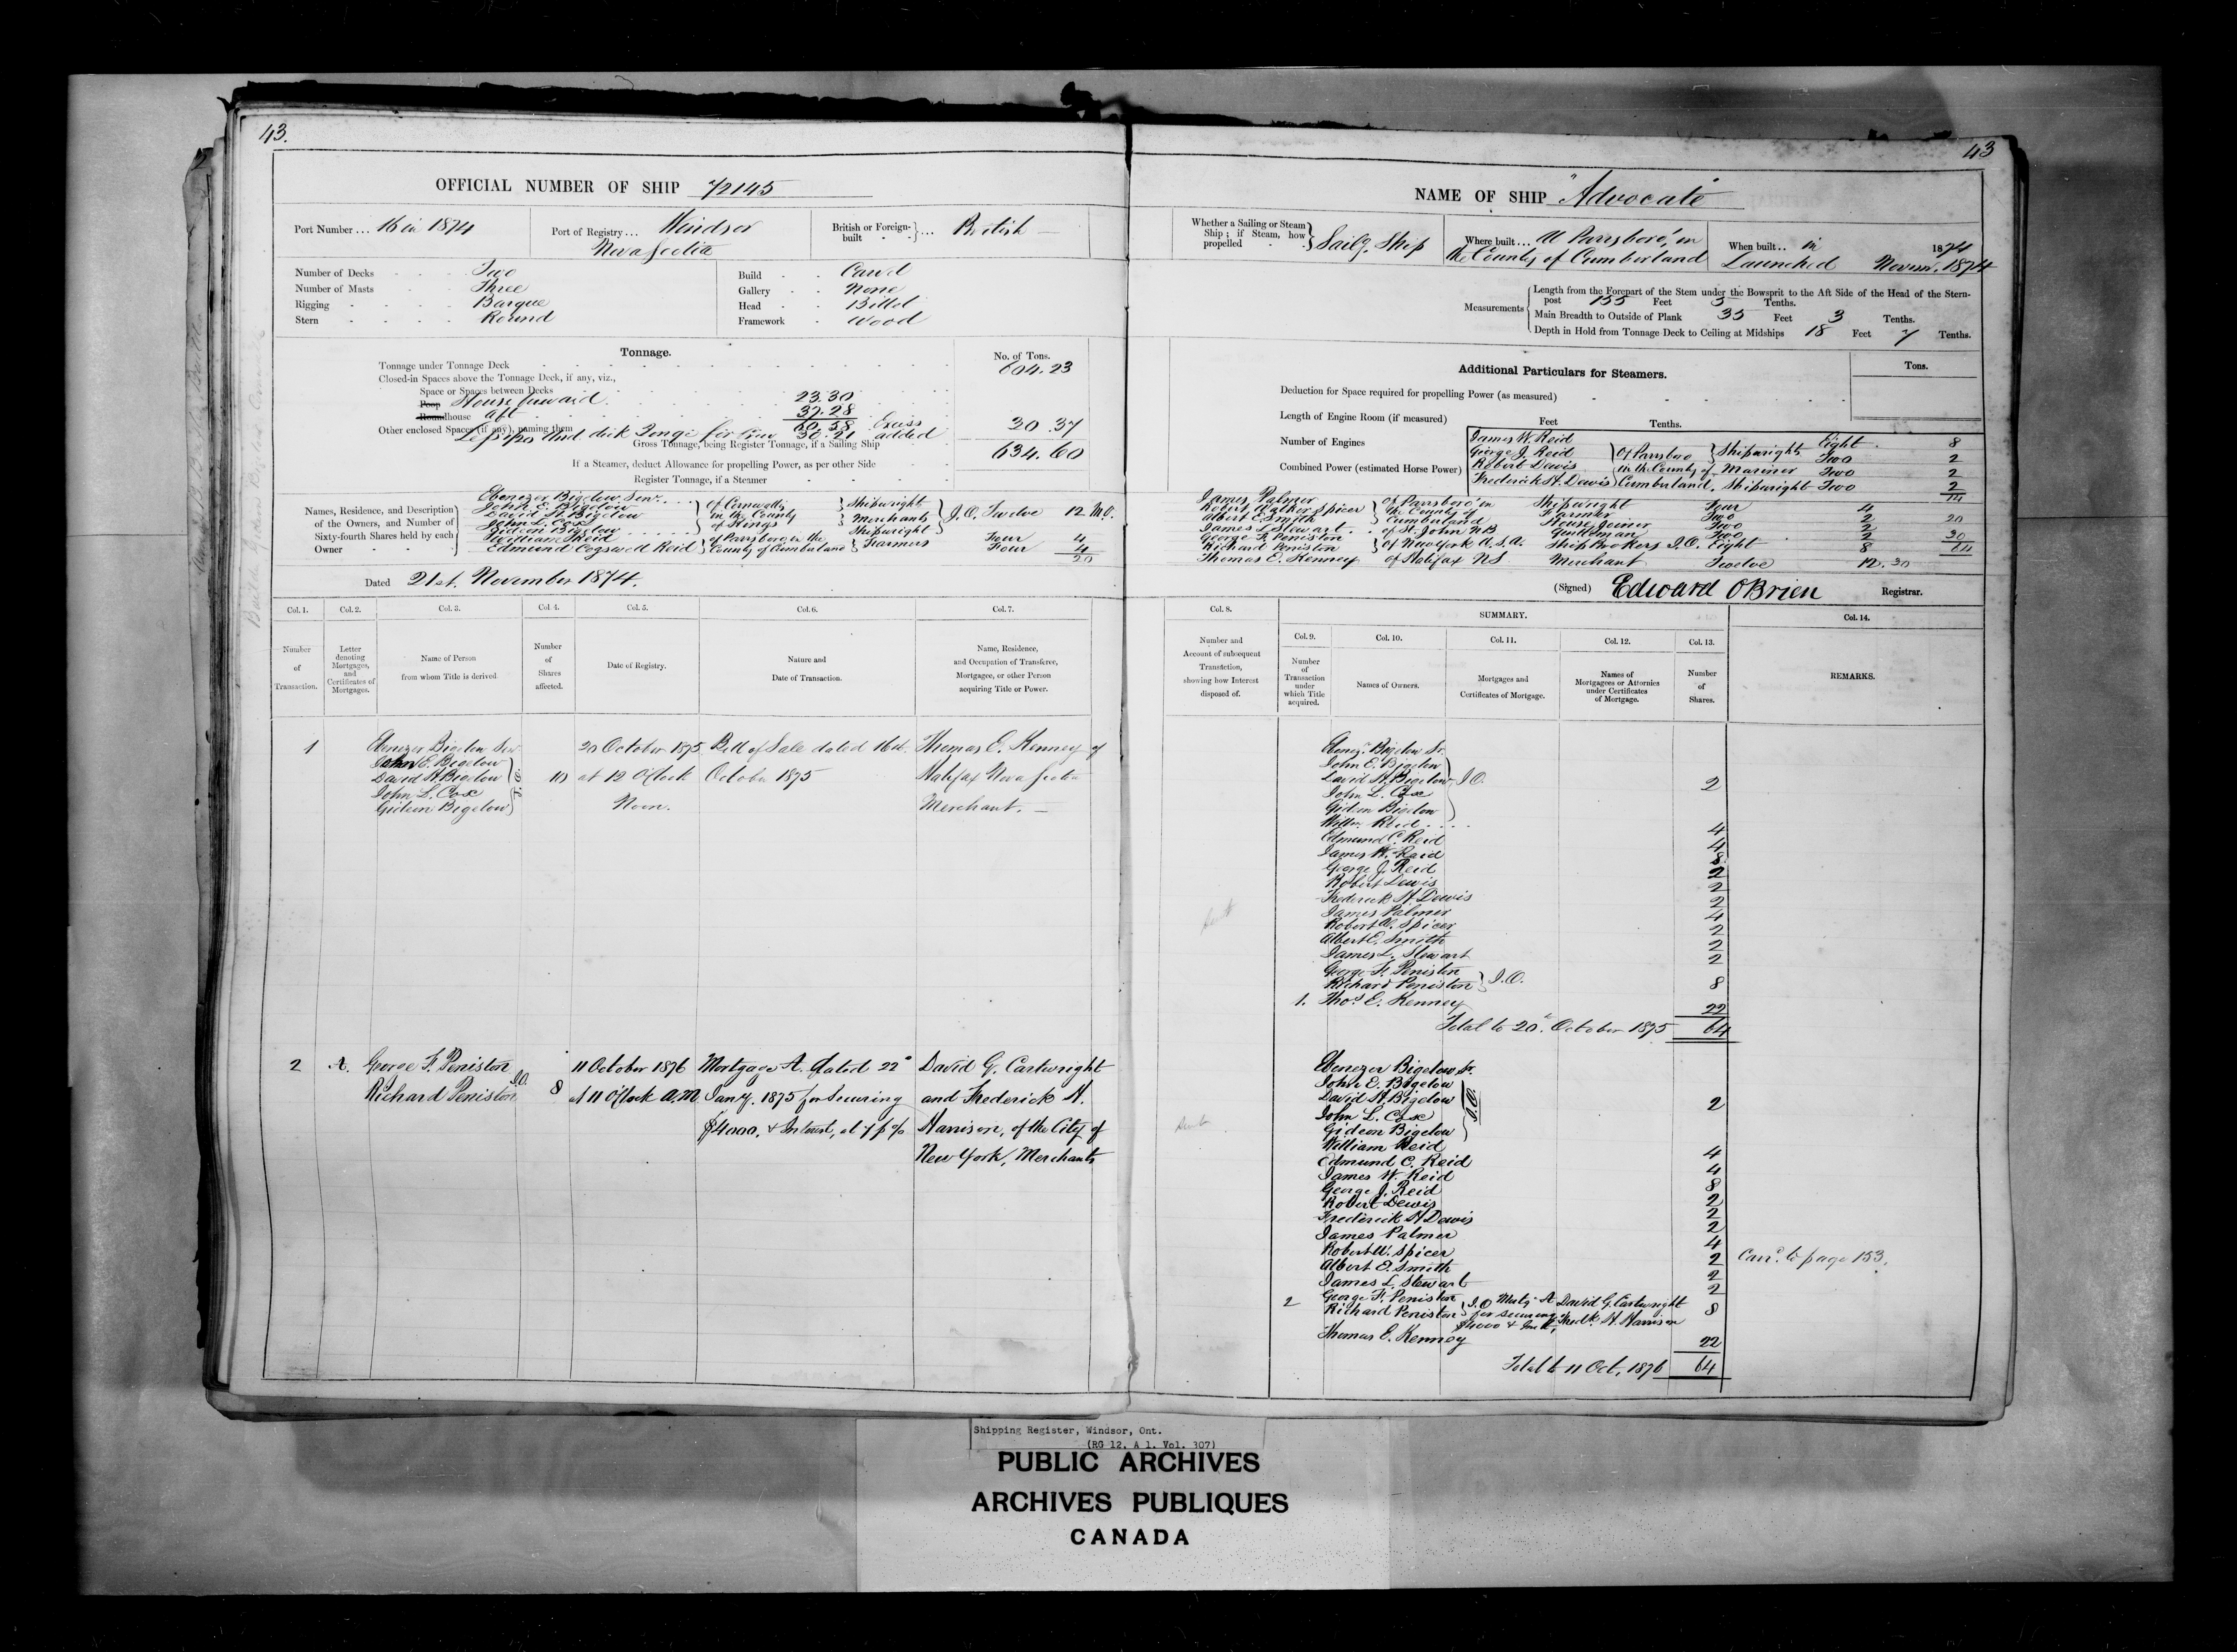 43.
OFFICIAL NUMBER OF SHIP 72145
Port Number ... 16 in 1874
Port of Registry ... Windsor
Nova Scotia
British or Foreign-built ... British
Number of Decks Two
Number of Masts Three
Rigging Barque
Stern Round
Build Carvel
Gallery None
Head Billet
Framework Wood
Tonnage.
No. of Tons.
Tonnage under Tonnage Deck 604.23
Closed-in Spaces above the Tonnage Deck, if any, viz.,
Space or Spaces between Decks
Poop House forward 23.30
Roundhouse aft 37.28
Other enclosed Spaces (if any), naming them 60.58 Excess
30.21 added 30.37
Gross Tonnage, being Register Tonnage, if a Sailing Ship 634.60
If a Steamer, deduct Allowance for propelling Power, as per other Side
Register Tonnage, if a Steamer
Names, Residence, and Description of the Owners, and Number of Sixty-fourth Shares held by each Owner
Ebenezer Bigelow Senr.
John E. Bigelow
David H. Bigelow
John L. Cox
Gideon Bigelow
of Cornwallis
in the County
of Kings
Shipwright
Merchants
Shipwright
J.O. Twelve 12
William Reid
Edmund Cogswell Reid
of Parrsboro in the
County of Cumberland
Farmers
Four 4
Four 4
20
Dated 21st. November 1874.
Col. 1.
Number of Transaction.
Col. 2.
Letter denoting Mortgages, and Certificates of Mortgages.
Col. 3.
Name of Person from whom Title is derived
Col. 4.
Number of Shares affected.
Col. 5.
Date of Registry.
Col. 6.
Nature and Date of Transaction.
Col. 7.
Name, Residence, and Occupation of Transferee, Mortgagee, or other Person acquiring Title or Power.
1
Ebenezer Bigelow Senr
John E. Bigelow
David H Bigelow
John L. Cox
Gideon Bigelow
J.O.
10
20 October 1875
at 12 O'Clock
Noon.
Bill of Sale dated 16th.
October 1875
Thomas E. Kenney of
Halifax Nova Scotia
Merchant.
2 A.
George F. Peniston
Richard Peniston
J.O.
8
11 October 1876
at 11 O'Clock A.M.
Mortgage A. dated 22d
Jany. 1875 for Securing
$4000. & Interest, at 7 p %
David G. Cartwright
and Frederick H.
Harrison, of the City of
New York, Merchants
43
NAME OF SHIP "Advocate"
Whether a Sailing or Steam Ship; if Steam, how propelled
Sailg. Ship
Where built ... At Parrsboro', in
the County of Cumberland
When built .. in 1874
Launched Novemr. 1874
Measurements
Length from the Forepart of the Stem under the Bowsprit to the Aft Side of the Head of the Stern-
post 155 Feet 5 Tenths.
Main Breadth to Outside of Plank 35 Feet 3 Tenths.
Depth in Hold from Tonnage Deck to Ceiling at Midships 18 Feet 7 Tenths.
Additional Particulars for Steamers.
Tons.
Deduction for Space required for propelling Power (as measured)
Length of Engine Room (if measured) Feet Tenths.
Number of Engines
Combined Power (estimated Horse Power)
James W. Reid
George J. Reid
Robert Dewis
Frederick H. Dewis
Of Parrsboro
in the County of
Cumberland.
Shipwright Eight 8
Two 2
Mariner Two 2
Shipwright Two 2
14
James Palmer
Robert Walker Spicer
Albert E. Smith
of Parrsboro' in
the County of
Cumberland
Shipwright Four 4
Farmer Two 2
House Joiner Two 2
James L. Stewart of St. John N.B. Gentleman Two 2
George F. Peniston
Richard Peniston
of New York U.S.A. Ship Brokers J.O. Eight 8
Thomas E. Kenney of Halifax N.S. Merchant Twelve 12. 30
20
30
64
(Signed) Edward O'Brien Registrar.
Col. 8.
Number and Account of subsequent Transaction, showing how Interest disposed of.
SUMMARY.
Col. 9.
Number of Transaction under which Title acquired.
Col. 10.
Names of Owners.
Col. 11.
Mortgages and Certificates of Mortgage.
Col. 12.
Names of Mortgagees or Attornies under Certificates of Mortgage.
Col. 13.
Number of Shares.
Col. 14.
REMARKS.
Ebenr. Bigelow Sr.
John E. Bigelow
David H. Bigelow J.O. 2
John L. Cox
Gideon Bigelow
Willm. Reid 4
Edmund C. Reid 4
James W. Reid 8
George J. Reid 2
Robert Dewis 2
Frederick H. Dewis 2
James Palmer 4
Robert W. Spicer 2
Albert E. Smith 2
James L. Stewart 2
George F. Peniston
Richard Peniston J.O. 8
1. Thos. E. Kenney 22
Total to 20th October 1875 64
Ebenezer Bigelow Sr.
John E. Bigelow
David H. Bigelow J.O. 2
John L. Cox
Gideon Bigelow
William Reid 4
Edmund C. Reid 4
James W. Reid 8
George J. Reid 2
Robert Dewis 2
Frederick H Dewis 2
James Palmer 4
Robert W. Spicer 2
Albert E. Smith 2
James L. Stewart 2
2 George F. Peniston
Richard Peniston J.O. Mortg. A David G. Cartwright 8
for securing Fredk. H. Harrison
$4000 & Intt.
Thomas E. Kenney 22
Total to 11 Oct, 1876 64
Carrd. to page 153.
Shipping Register, Windsor, Ont.
(RG 12, A 1, Vol. 307)
PUBLIC ARCHIVES
ARCHIVES PUBLIQUES
CANADA